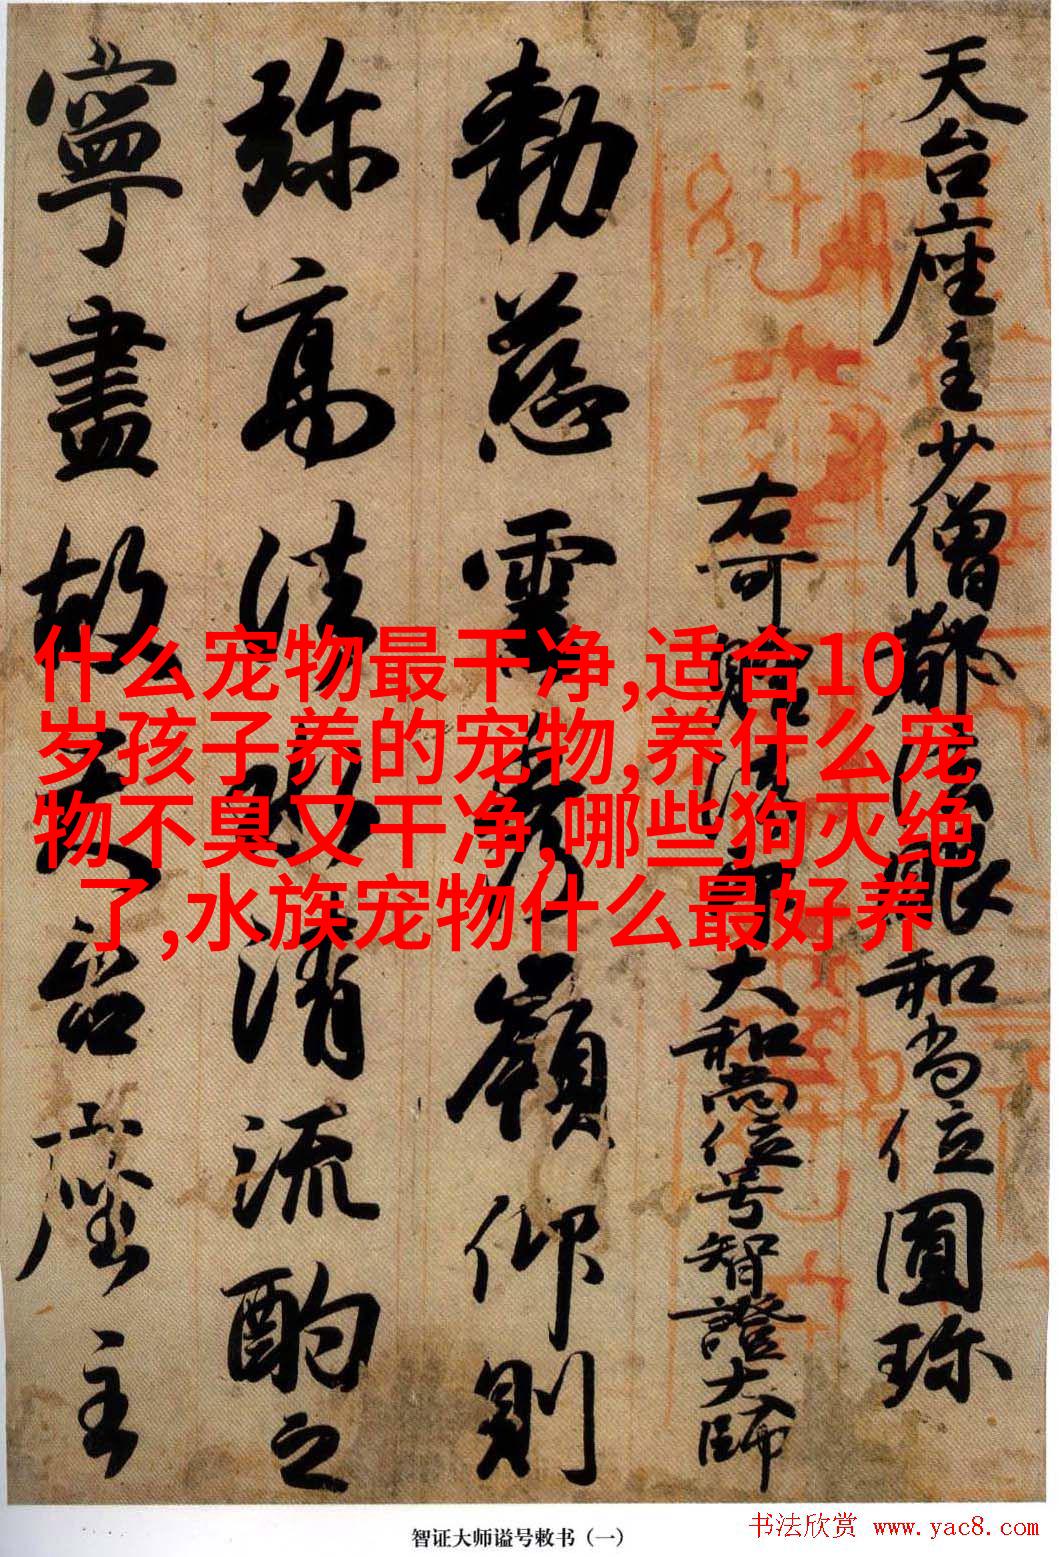 天台座主少僧都法眼和尚位圓珎
右可贈法印大和尚位号智證大師
勅慈雲秀嶺仰則
弥高法水清流酌之
寧盡故天台座主
什么宠物最干净,适合10
岁孩子养的宠物,养什么宠
物不臭又干净,哪些狗灭绝
了,水族宠物什么最好养
智证大师谥号敕书（一）
书法欣赏 www.yac8.com